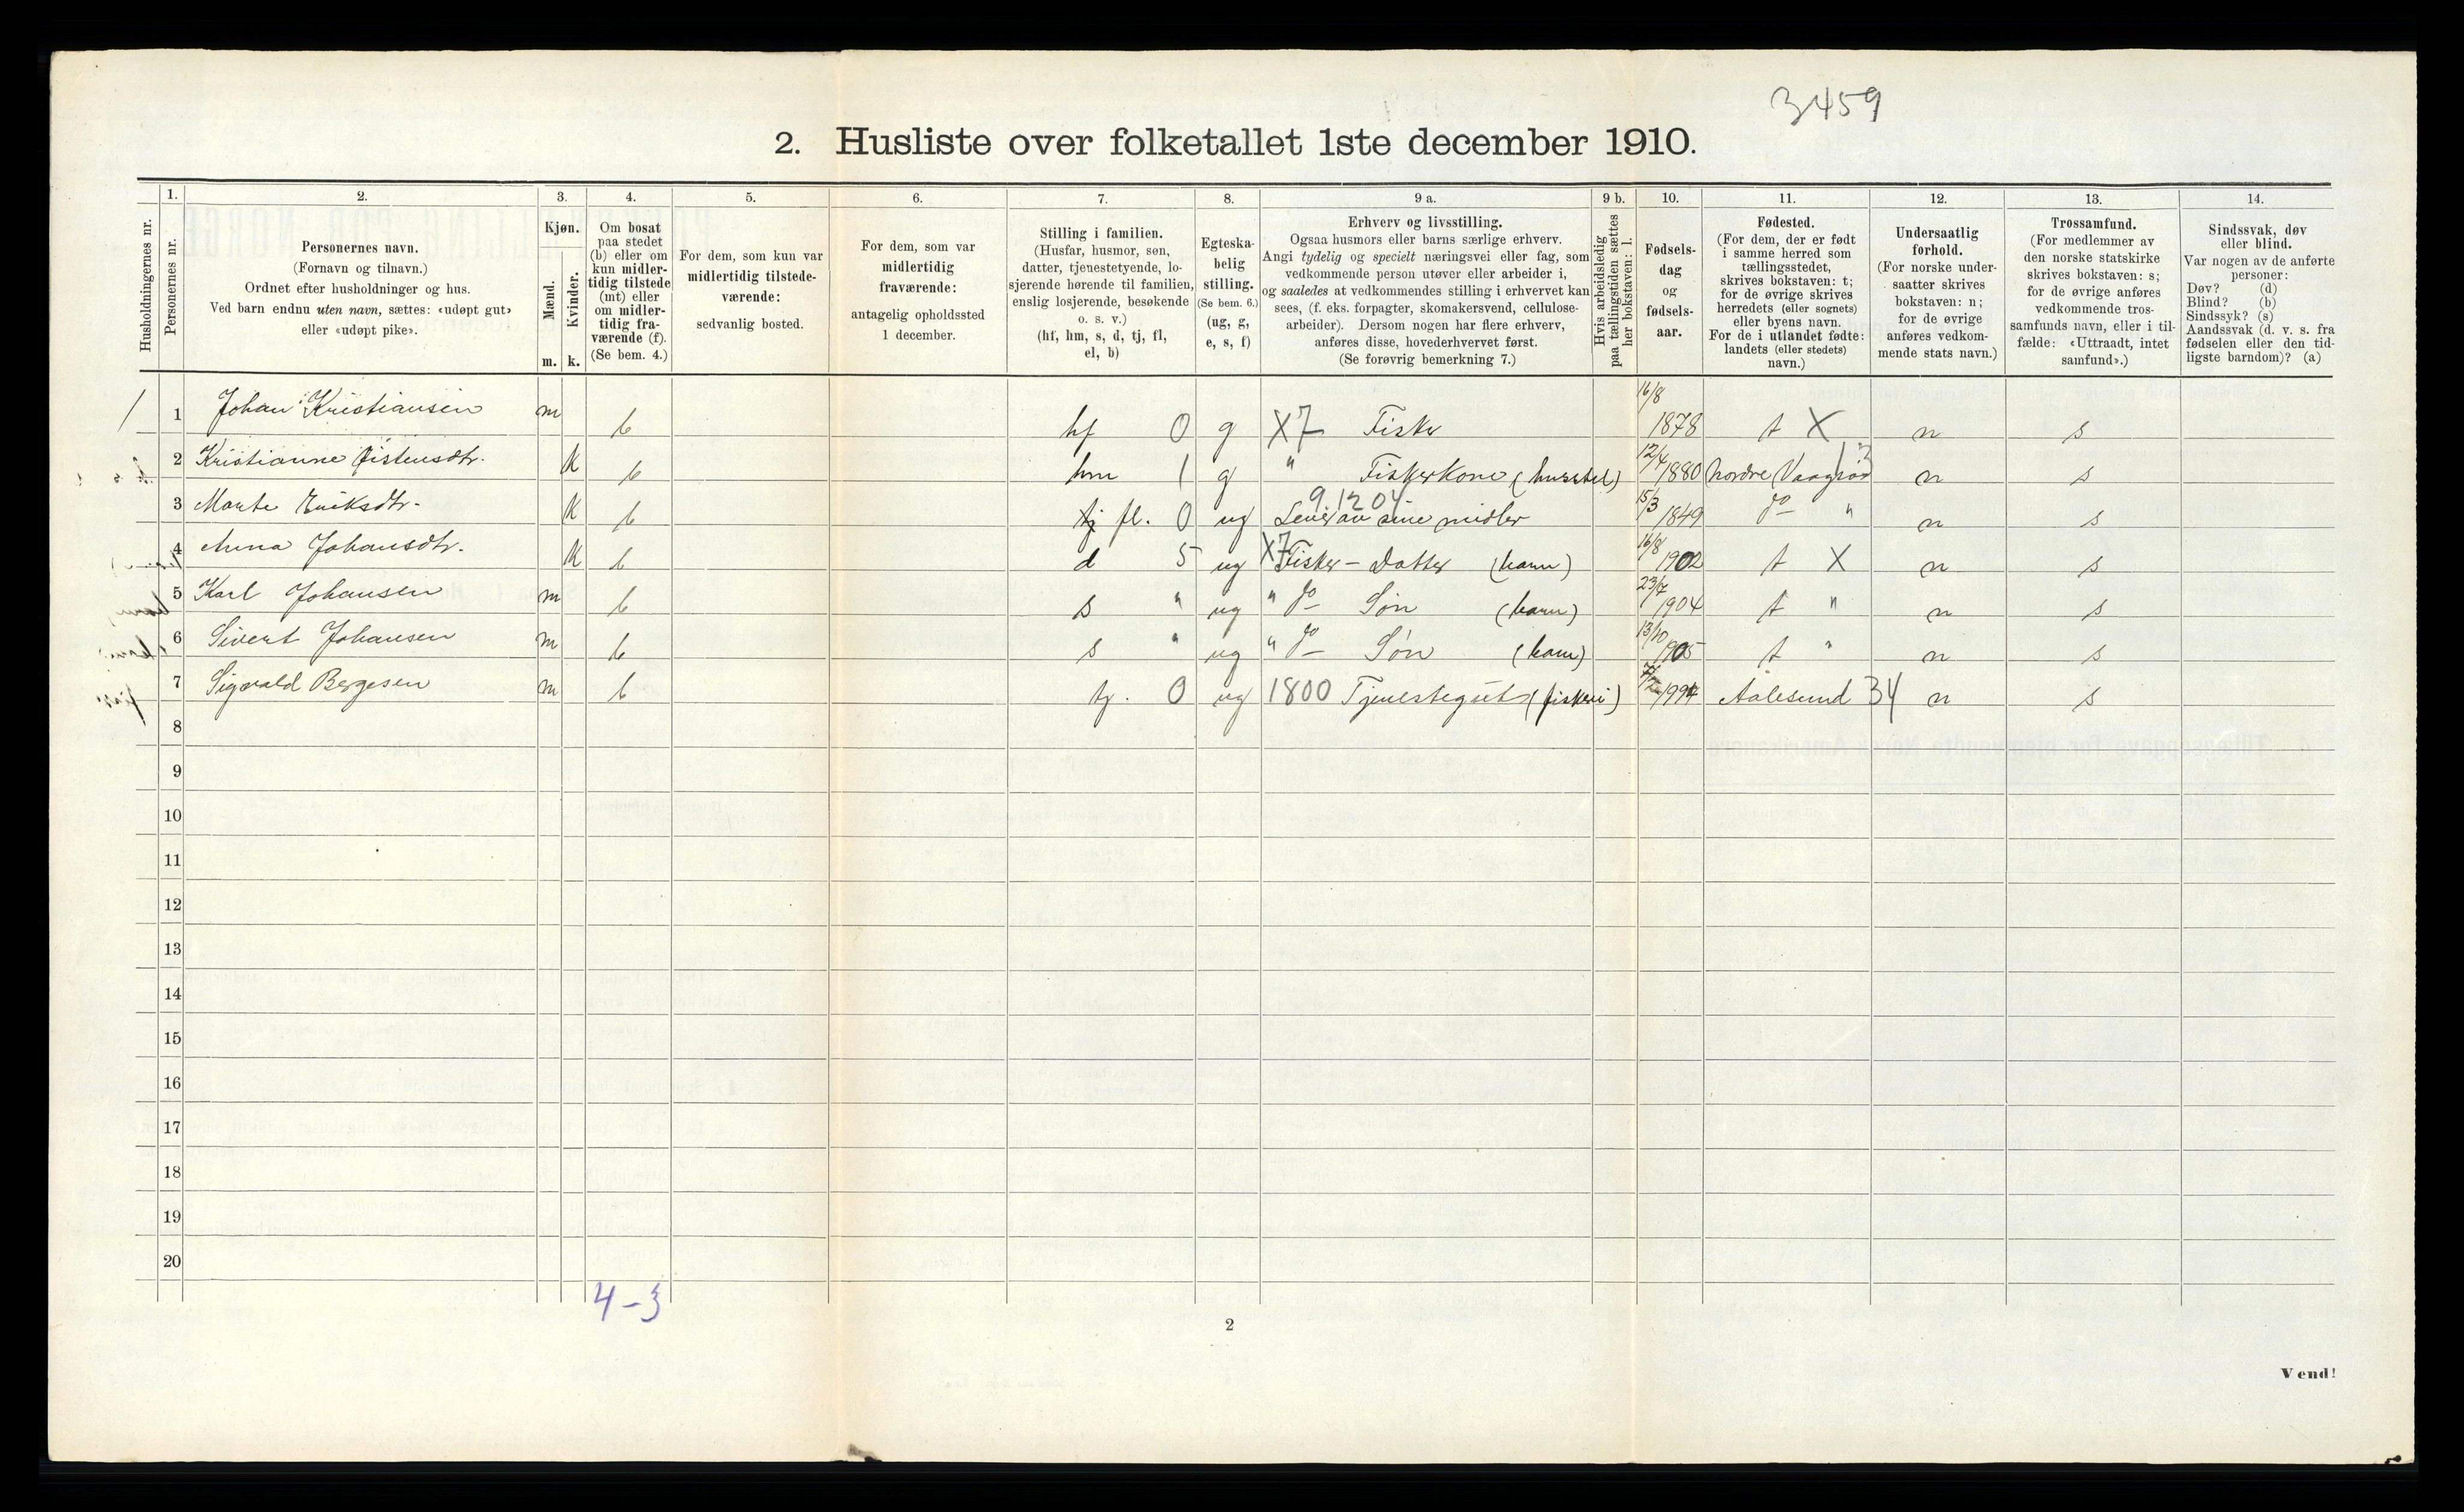 3459
2. Husliste over folketallet 1ste december 1910.
1. 2. 3. 4. 5. 6. 7. 8. 9 a. 9 b. 10. 11. 12. 13. 14.
Husholdningernes nr.
Personernes nr.
Personernes navn.
(Fornavn og tilnavn.)
Ordnet efter husholdninger og hus.
Ved barn endnu uten navn, sættes: «udøpt gut»
eller «udøpt pike».
Kjøn.
Mænd.
Kvinder.
m. k.
Om bosat
paa stedet
(b) eller om
kun midler-
tidig tilstede
(mt) eller
om midler-
tidig fra-
værende (f).
(Se bem. 4.)
For dem, som kun var
midlertidig tilstede-
værende:
sedvanlig bosted.
For dem, som var
midlertidig
fraværende:
antagelig opholdssted
1 december.
Stilling i familien.
(Husfar, husmor, søn,
datter, tjenestetyende, lo-
sjerende hørende til familien,
enslig losjerende, besøkende
o. s. v.)
(hf, hm, s, d, tj, fl,
el, b)
Egteska-
belig
stilling.
(Se bem. 6.)
(ug, g,
e, s, f)
Erhverv og livsstilling.
Ogsaa husmors eller barns særlige erhverv.
Angi tydelig og specielt næringsvei eller fag, som
vedkommende person utøver eller arbeider i,
og saaledes at vedkommendes stilling i erhvervet kan
sees, (f. eks. forpagter, skomakersvend, cellulose-
arbeider). Dersom nogen har flere erhverv,
anføres disse, hovederhvervet først.
(Se forøvrig bemerkning 7.)
Hvis arbeidsledig
paa tællingstiden sættes
her bokstaven: l.
Fødsels-
dag
og
fødsels-
aar.
Fødested.
(For dem, der er født
i samme herred som
tællingsstedet,
skrives bokstaven: t;
for de øvrige skrives
herredets (eller sognets)
eller byens navn.
For de i utlandet fødte:
landets (eller stedets)
navn.)
Undersaatlig
forhold.
(For norske under-
saatter skrives
bokstaven: n;
for de øvrige
anføres vedkom-
mende stats navn.)
Trossamfund.
(For medlemmer av
den norske statskirke
skrives bokstaven: s;
for de øvrige anføres
vedkommende tros-
samfunds navn, eller i til-
fælde: «Uttraadt, intet
samfund».)
Sindssvak, døv
eller blind.
Var nogen av de anførte
personer:
Døv? (d)
Blind? (b)
Sindssyk? (s)
Aandssvak (d. v. s. fra
fødselen eller den tid-
ligste barndom)? (a)
1 Johan Kristiansen m b hf 0 g X7 Fisker 16/8 1878 t X n s
2 Kristianne Øistensdtr. K b hm 1 g " Fiskerkone (husstel) 12/4 1880 Nordre Vaagsøe n s
3 Marte Eriksdtr. K b tj fl. 0 ug 91204 Lever av sine midler 15/3 1849 do " n s
4 Anna Johansdtr. K b d 5 ug X7 Fisker - Datter (barn) 16/8 1902 t X n s
5 Karl Johansen m b s " ug " do Søn (barn) 23/7 1904 t " n s
6 Sivert Johansen m b s " ug " do Søn (barn) 13/10 1905 t " n s
7 Sigvald Bergesen m b tj. 0 ug 1800 Tjenestegut (fiskeri) Aalesund 34 n s
8
9
10
11
12
13
14
15
16
17
18
19
20
4-3
2
Vend!